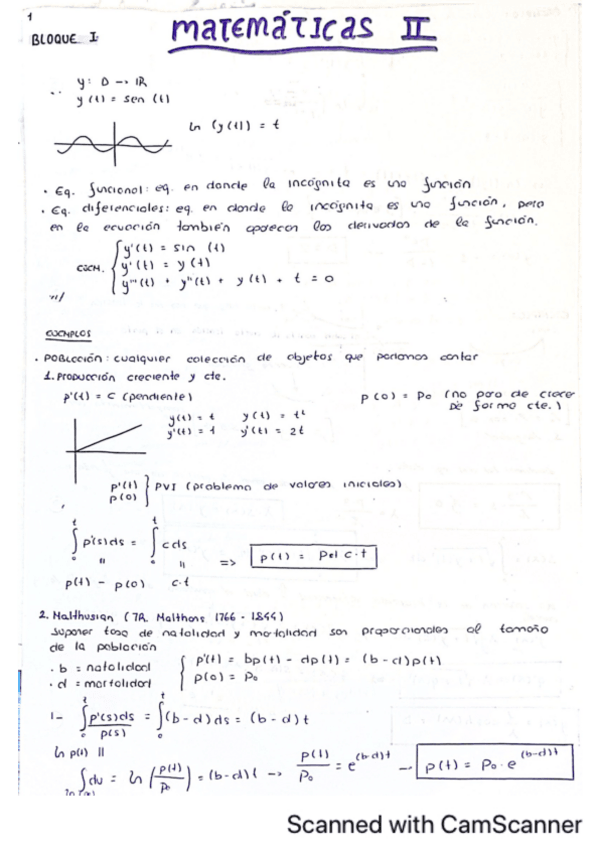 1
BLOQUE I
MATEMÁTICAS II
y: D → IR
y(t) = sen (t)
ln (y(t)) = t
· Eq. funcional: eq. en donde la incógnita es una función
· Eq. diferenciales: eq. en donde la incógnita es una función, pero
en la ecuación también aparecen las derivadas de la función.
y'(t) = sin (t)
y'(t) = y(t)
y'''(t) + y''(t) + y(t) + t = 0
EJEMPLOS
· POBLACIÓN: cualquier colección de objetos que podamos contar
1. PRODUCCIÓN creciente y cte.
p'(t) = c (pendiente)
p(0) = Po (no para de crecer
de forma cte.)
y(t) = t y(t) = t²
y'(t) = 1 y'(t) = 2t
p'(t)
p(0) } PVI (problema de valores iniciales)
∫₀ᵗ p'(s)ds = ∫₀ᵗ cds
p(t) - p(0) c·t
=> p(t) = c·t
2. Malthusian (1766 - 1844)
Suponer tasa de natalidad y mortalidad son proporcionales al tamaño
de la población
· b = natalidad
· d = mortalidad
p'(t) = bp(t) - dp(t) = (b-d)p(t)
p(0) = Po
1- ∫₀ᵗ p'(s)ds / p(s) = ∫₀ᵗ (b-d)ds = (b-d)t
ln p(t) ||
∫ du = ln (p(t)/po) = (b-d)t → p(t)/Po = e^(b-d)t → p(t) = Po·e^(b-d)t
Scanned with CamScanner